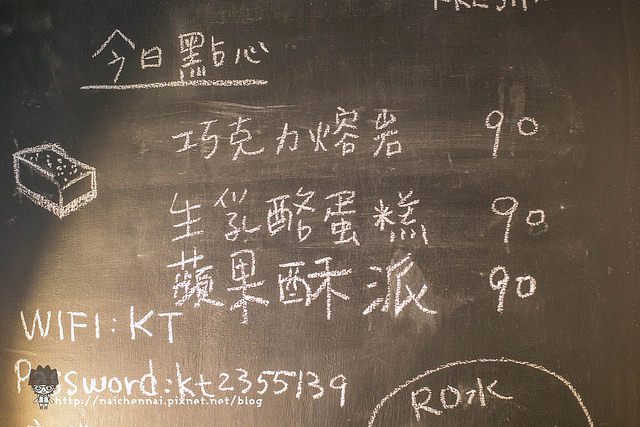 今日點心
巧克力熔岩 90
生乳酪蛋糕 90
蘋果酥派 90
WIFI: KT
Password: kt2355139
http://naichennai.pixnet.net/blog
RO水